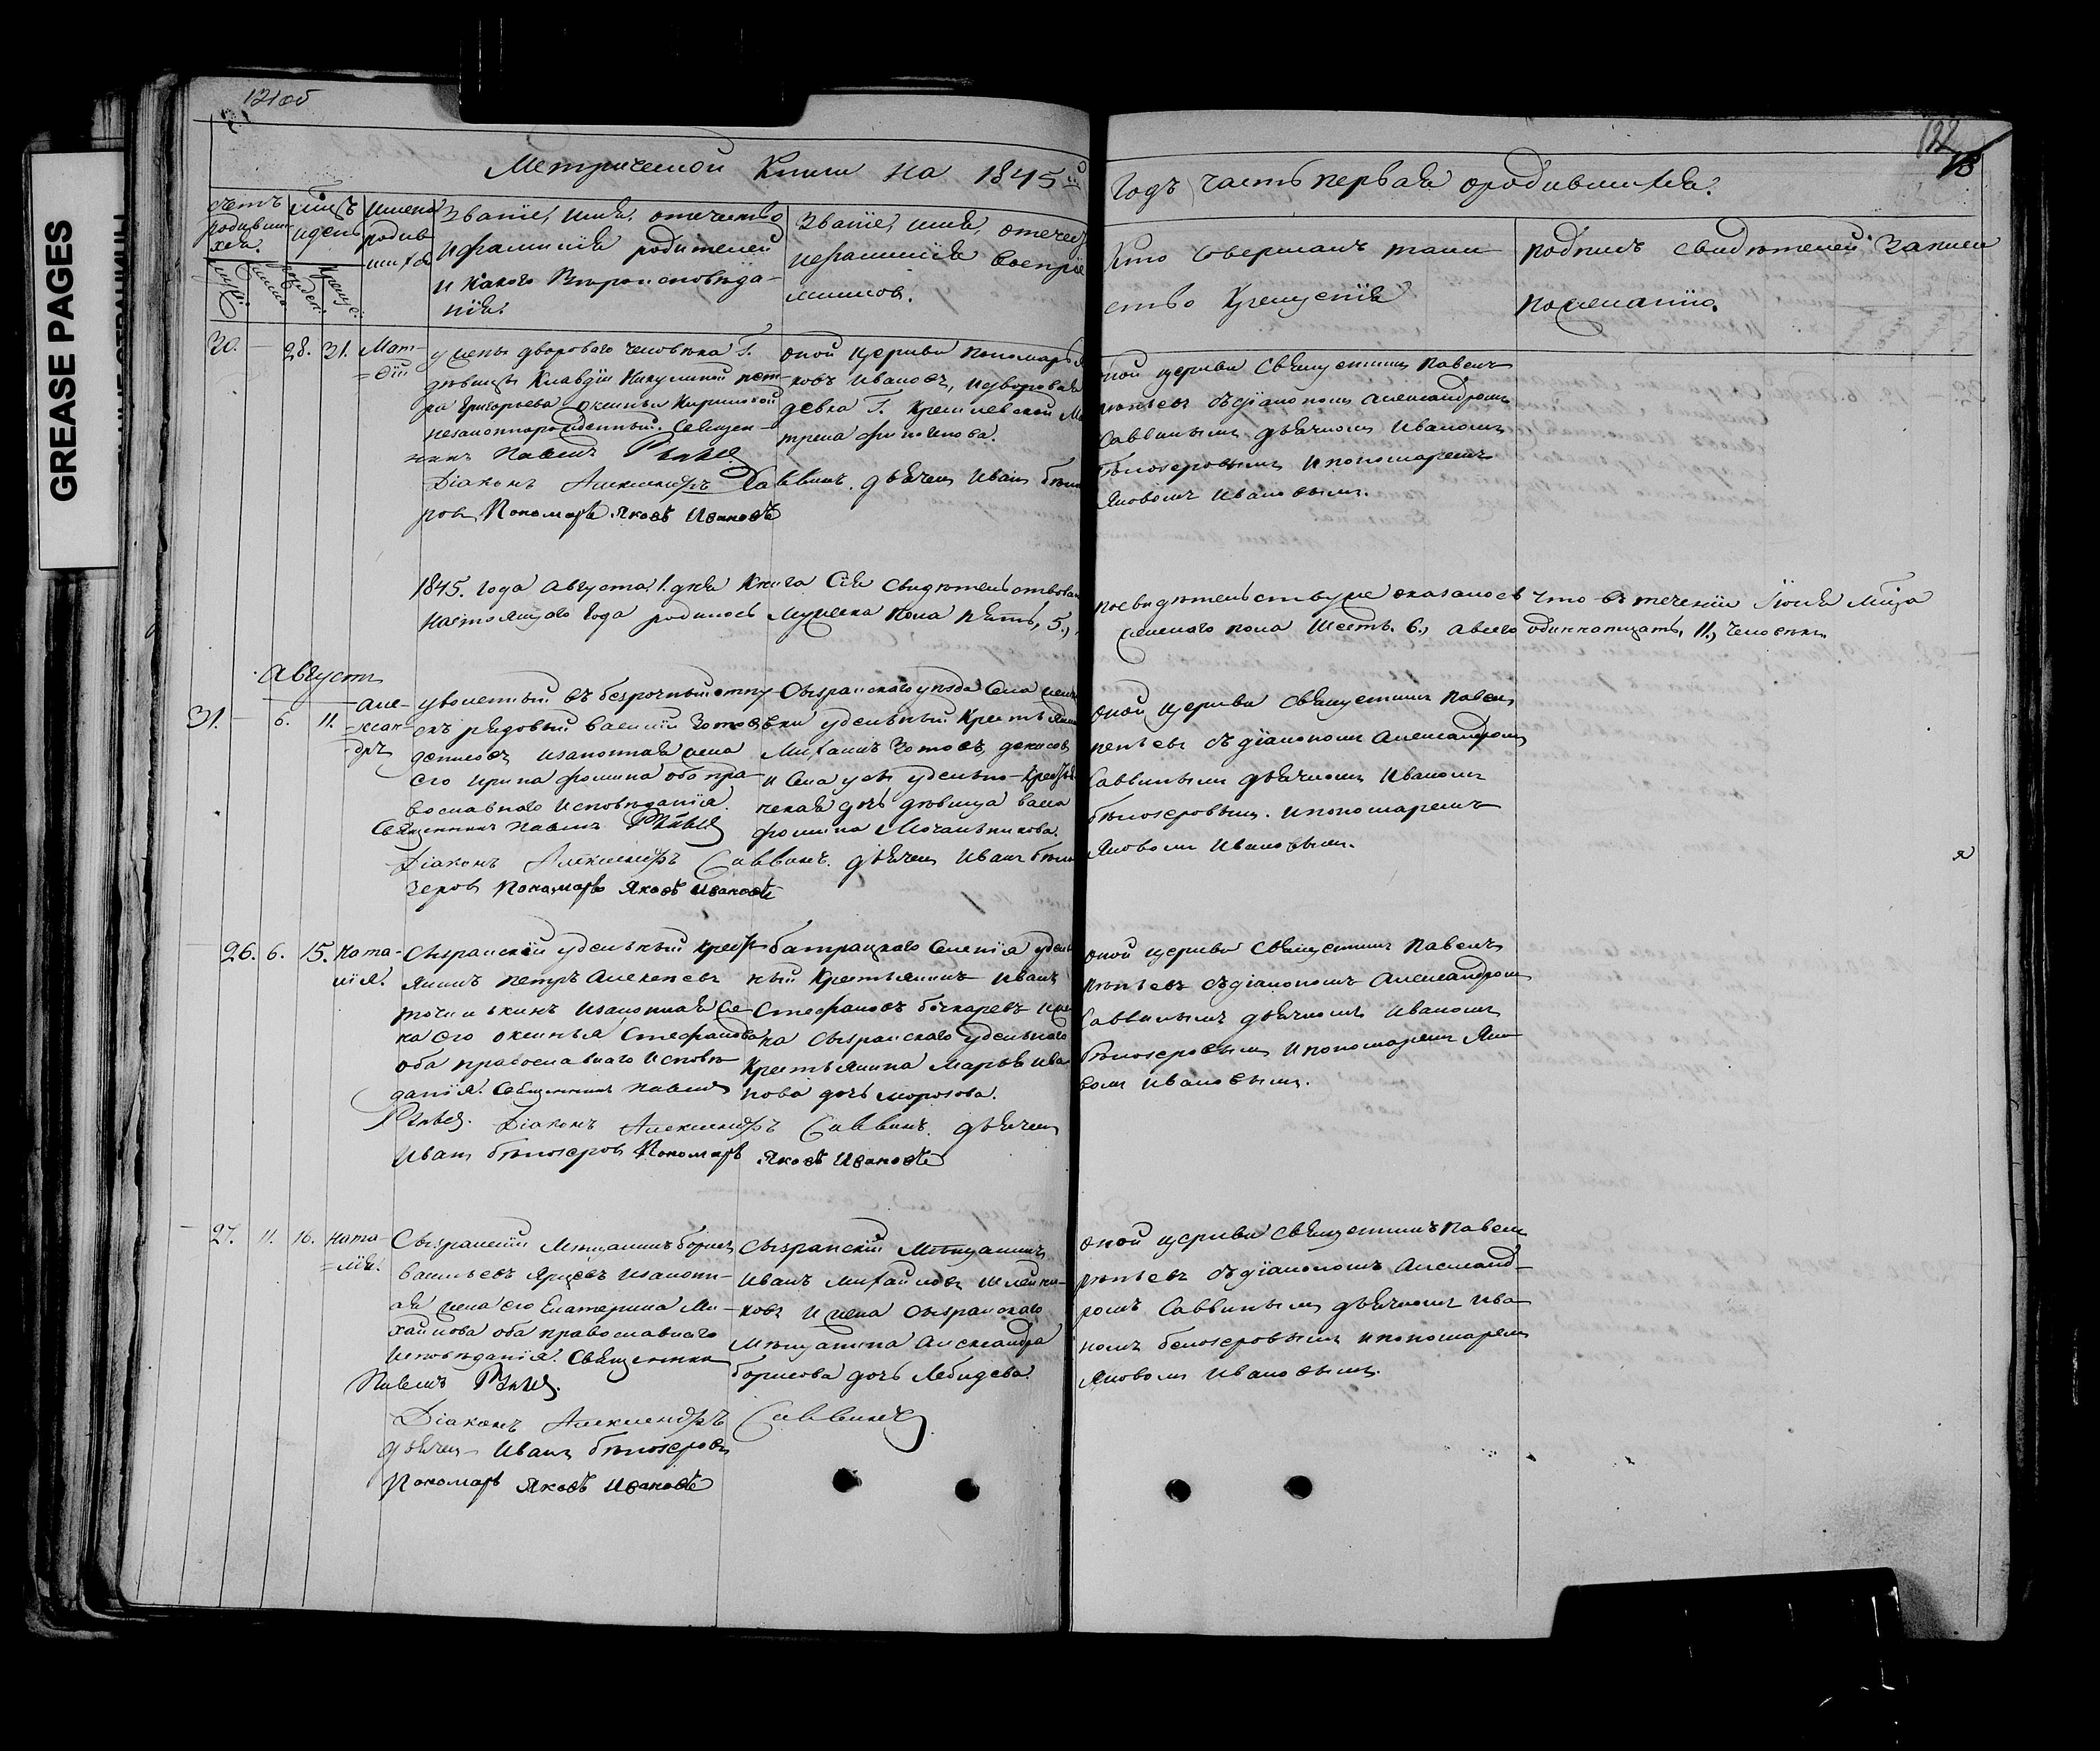 GREASE PAGES
121об
122
18
Метрической Книги на 1845й
Годъ часть первая о родившихся.
счетъ родившихся.
мцъ и день
имена родившихся
Званіе, имя, отечество
и фамилія родителей
и какого вѣроисповѣданія.
Званіе, имя, отечес
и фамилія воспріе
мниковъ.
Кто совершалъ таин
ство Крещенія
подписъ свидѣтелей записи
по желанію.
30. — 28. 31. Мат-
=ѳій
у жены двороваго человѣка Г.
дѣвицы Клавдіи Никулиной пет-
ра Григорьева Оксиньи Кириловой
незаконнорожденный. Священ-
никъ Павелъ
Діаконъ Александръ Саввинъ. дьячекъ Иванъ бѣло
ровъ Пономарь Яковъ Ивановъ
оной церкви пономарь Я
ковъ Ивановъ, и дворовая
девка Г.
трена
оной церкви Священникъ Павелъ
съ діакономъ Александромъ
Саввинымъ дьячкомъ Иваномъ
Бѣлозеровымъ и пономаремъ
Яковомъ Ивановымъ.
1845. года Августа 1. дня Книга Сія Свидѣтельствован
по свидѣтельству же оказалось что въ теченіи Іюля Мца
настоящаго Года родилось Мужеска пола пять, 5.,
женскаго пола шесть. 6., а всего одиннатцать, 11., человѣкъ.
Августъ
31. — 6. 11. Але-
=ксан-
дръ
уволенный въ безрочный отпу-
скъ рядовый Василій Зотовъ
денисовъ и законная жена
его Ирина Фомина оба пра-
вославнаго исповѣданія.
Священникъ Павелъ
Діаконъ Александръ Саввинъ. дьячекъ Иванъ бѣло
зеровъ Пономарь Яковъ Ивановъ
Сызранскаго уѣзда Села
удельный Крестьянин
Михаилъ Зотовъ денисовъ
и Села усы удельно-крестья
ческая дочь дѣвица васса
Фомина Мочальникова.
Оной церкви Священникъ Павелъ
съ діакономъ Александромъ
Саввинымъ дьячкомъ Иваномъ
бѣлозеровымъ. и пономаремъ
Яковомъ Ивановымъ.
26. 6. 15. Ната-
лія.
Сызранскій удельный крест
янинъ Петръ Алексеевъ
точилькинъ и законная же-
на его оксинья Стефанова
оба православнаго исповѣ-
данія. Священникъ Павелъ
Діаконъ Александръ Саввинъ. дьячекъ
Иванъ бѣлозеровъ Пономарь Яковъ Ивановъ
батрацкаго Селенія удель
ный Крестьянинъ Иванъ
Стефановъ бочкаревъ и же
на Сызранскаго удельнаго
Крестьянина Марья Ива
нова дочь морозова.
оной церкви Священникъ Павелъ
съ діакономъ Александромъ
Саввинымъ дьячкомъ Иваномъ
Бѣлозеровымъ и пономаремъ Яко
вомъ Ивановымъ.
27. 11. 16. Ната-
=лія.
Сызранскій Мѣщанинъ борисъ
Васильевъ Ярцевъ и законн-
ая жена его Екатерина Ми-
хайлова оба православнаго
исповѣданія. Священникъ
Павелъ
Діаконъ Александръ Саввинъ
дьячекъ Иванъ бѣлозеровъ
Пономарь Яковъ Ивановъ
Сызранскій Мѣщанинъ
Иванъ Михайловъ
ковъ и жена Сызранскаго
Мѣщанина Александра
борисова дочь Лебидева.
оной церкви Священникъ Павелъ
съ діакономъ Александ-
ромъ Саввинымъ дьячкомъ Ива
номъ белозеровымъ и пономаремъ
Яковомъ Ивановымъ.